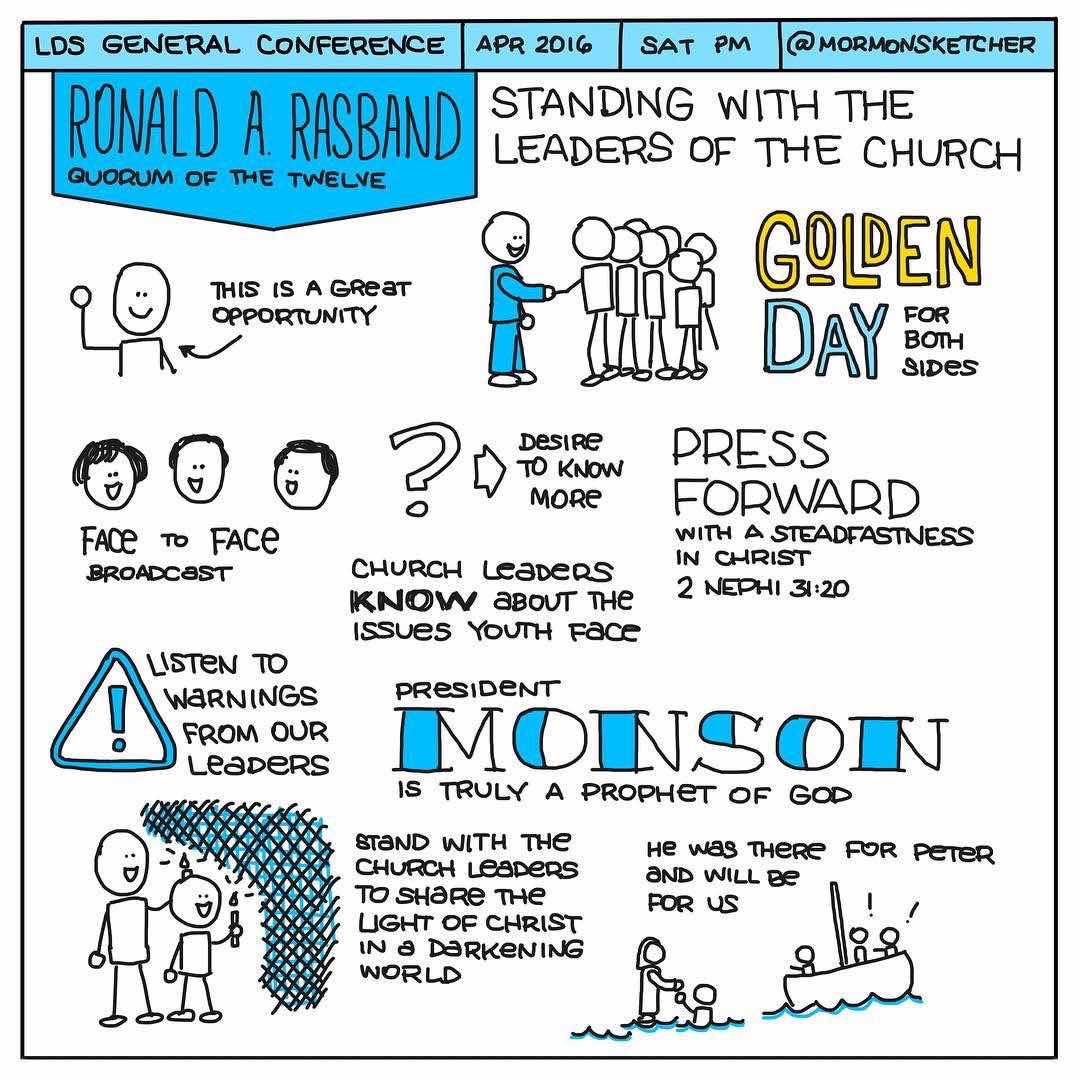 LDS GENERAL CONFERENCE APR 2016 SAT PM @MORMONSKETCHER
RONALD A. RASBAND
QUORUM OF THE TWELVE
STANDING WITH THE
LEADERS OF THE CHURCH
THIS IS A GREAT
OPPORTUNITY
GOLDEN
DAY
FOR
BOTH
SIDES
FACE TO FACE
BROADCAST
?
DESIRE
TO KNOW
MORE
PRESS
FORWARD
WITH A STEADFASTNESS
IN CHRIST
2 NEPHI 31:20
CHURCH LEADERS
KNOW ABOUT THE
ISSUES YOUTH FACE
!
LISTEN TO
WARNINGS
FROM OUR
LEADERS
PRESIDENT
MONSON
IS TRULY A PROPHET OF GOD
STAND WITH THE
CHURCH LEADERS
TO SHARE THE
LIGHT OF CHRIST
IN A DARKENING
WORLD
HE WAS THERE FOR PETER
AND WILL BE
FOR US
! !